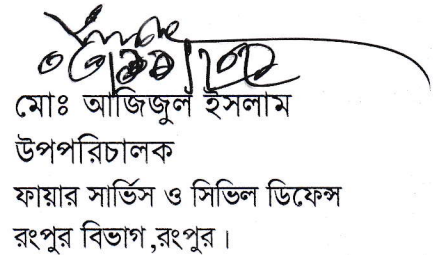 মোঃ আজিজুল ইসলাম
উপপরিচালক
ফায়ার সার্ভিস ও সিভিল ডিফেন্স
রংপুর বিভাগ,রংপুর।